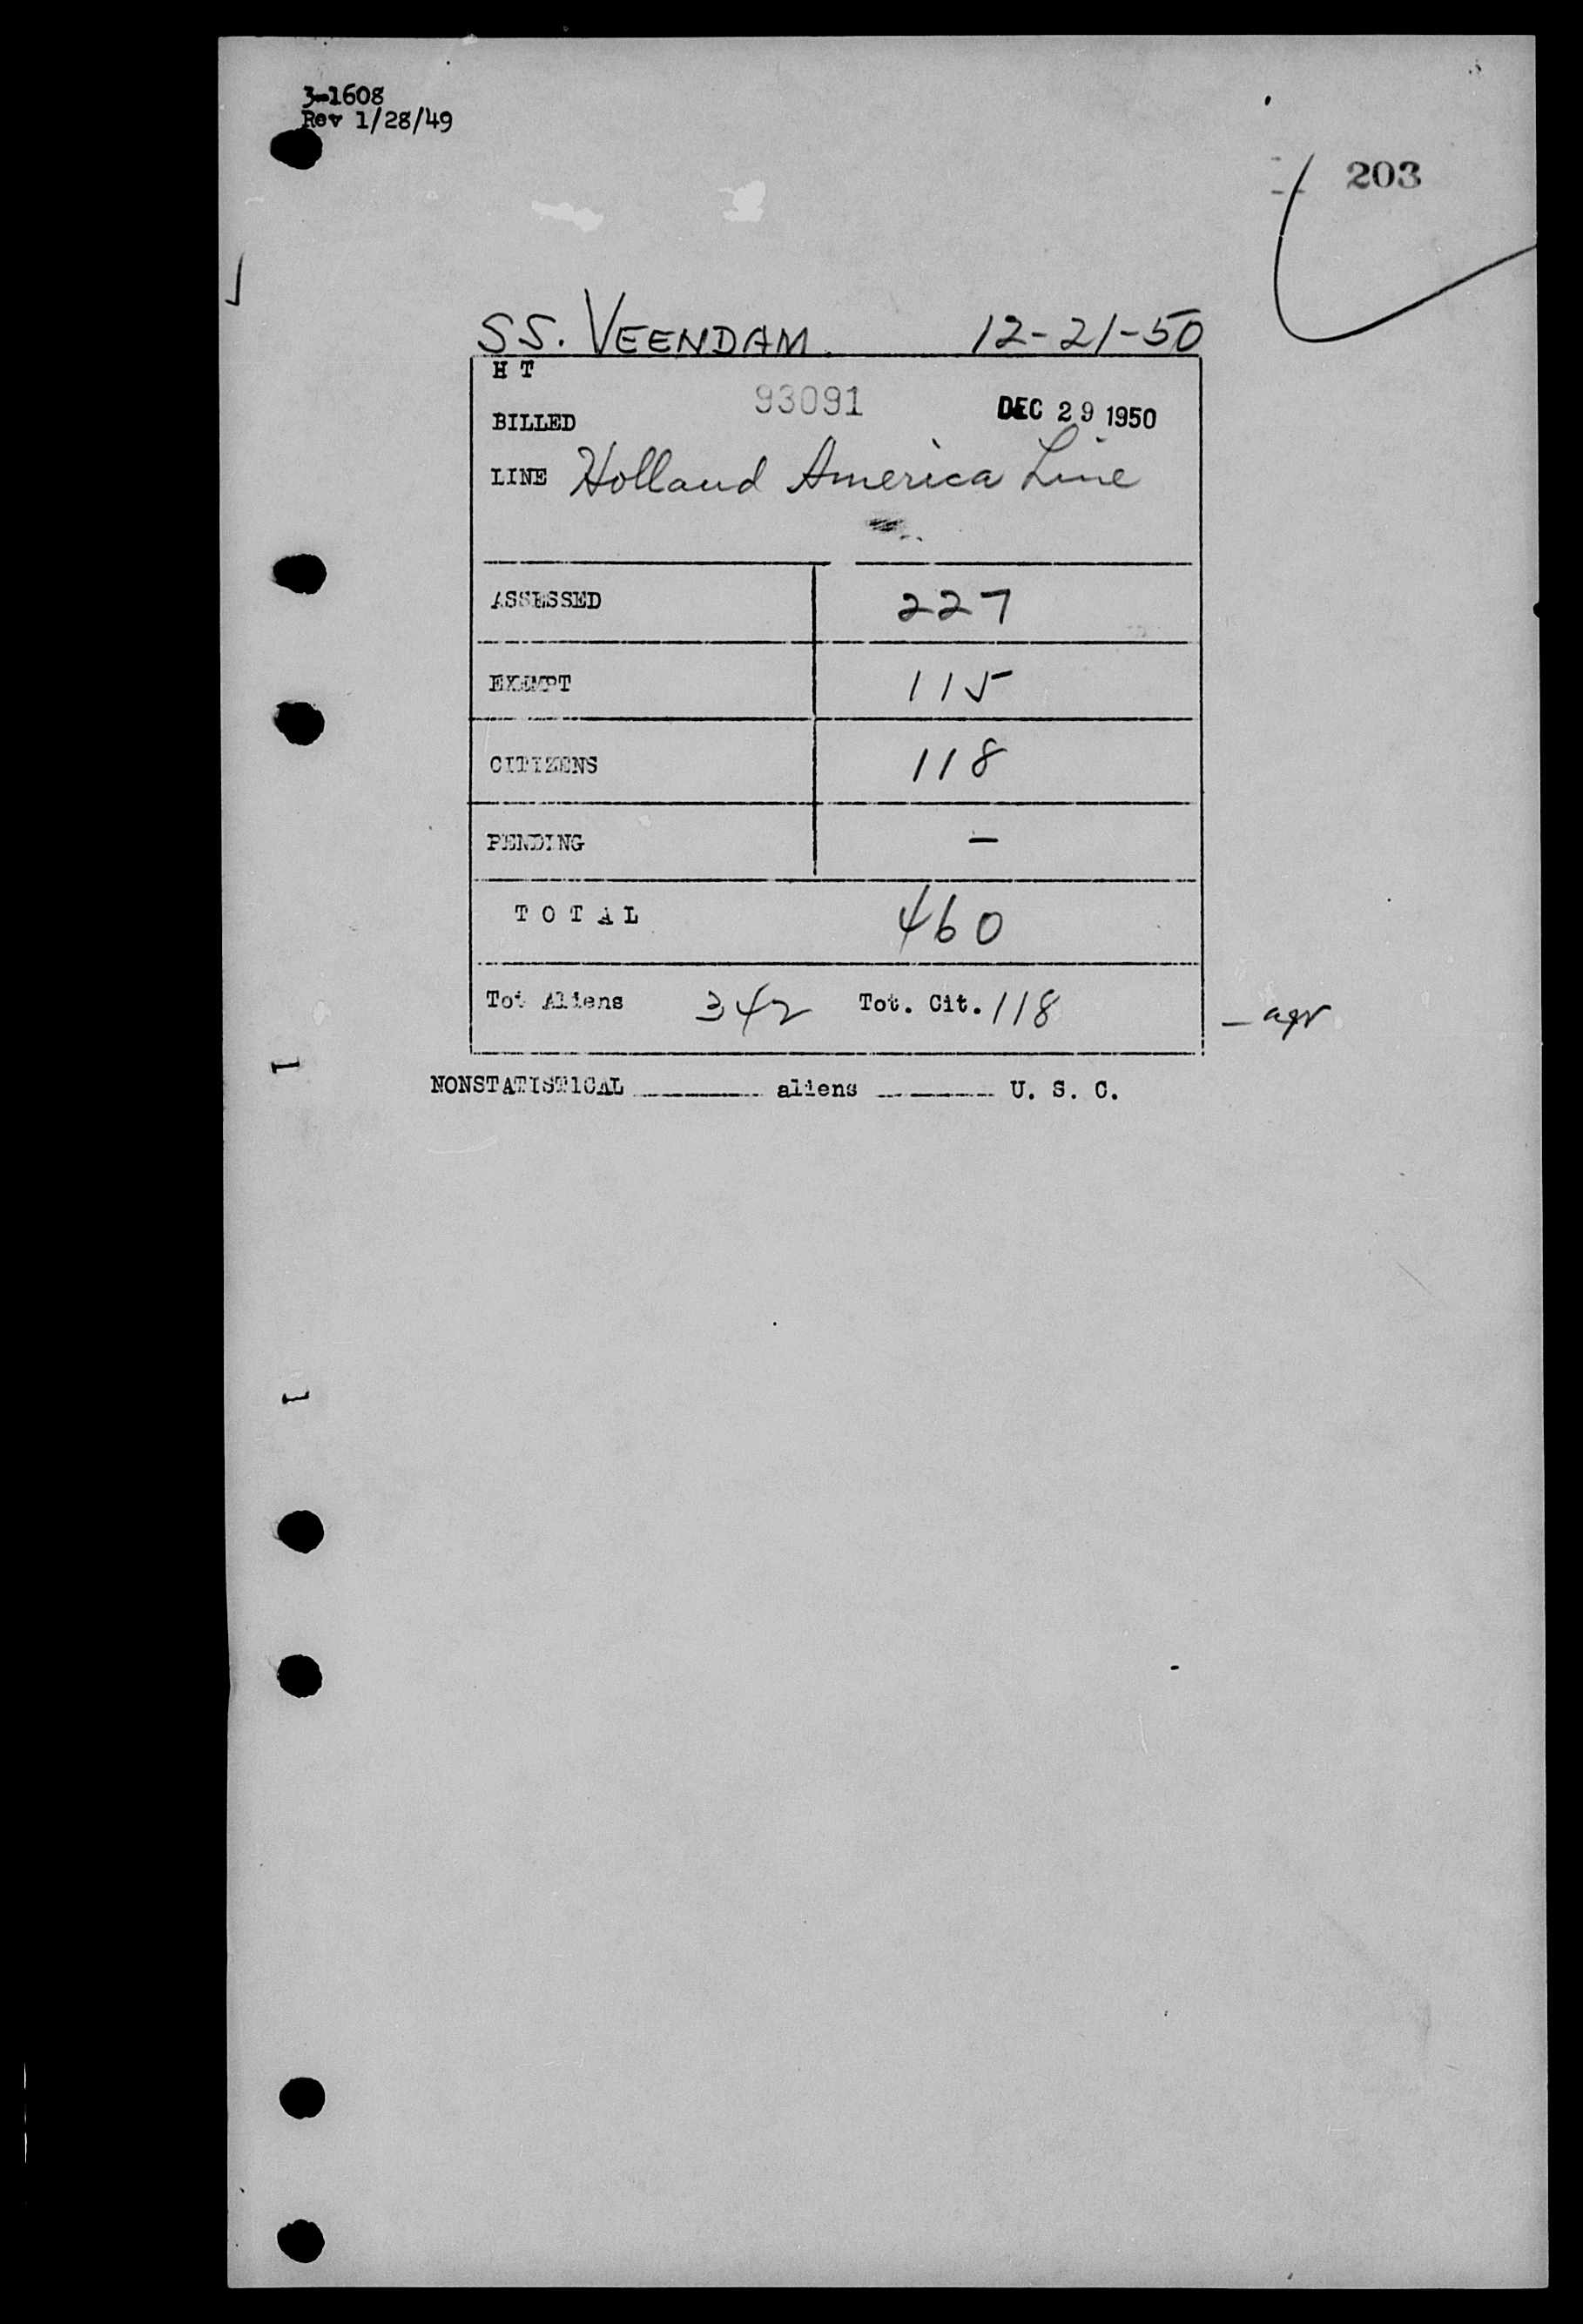 3-1608
Rev 1/28/49
203
SS. VEENDAM. 12-21-50
H T
93091 DEC 29 1950
BILLED
LINE Holland America Line
ASSESSED 227
EXEMPT 115
CITIZENS 118
PENDING —
T O T A L 460
Tot Aliens 342 Tot. Cit. 118
NONSTATISTICAL ______ aliens ______ U. S. C.